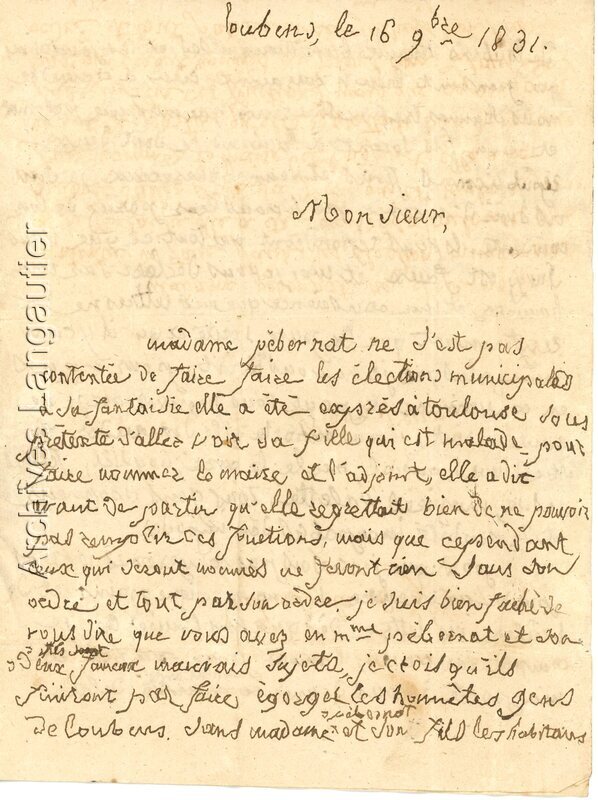 Loubens, le 16 9bre 1831.
Monsieur,
madame pébernat ne s'est pas
contentée de faire faire les élections municipales
à sa fantaisie elle a été exprès à toulouse sous
prétexte d'aller voir sa fille qui est malade pour
faire nommer le maire et l'adjoint, elle a dit
avant de partir qu'elle regrettait bien de ne pouvoir
pas remplir ces fonctions, mais que cependant
ceux qui seront nommés ne feront rien sans son
ordre et tout par son ordre. je suis bien faché de
vous dire que vous avez en mme pébernat et son
fils deux fameux mauvais sujets, je crois qu'ils
finiront par faire égorger les honnêtes gens
de Loubens. sans madame pébernat et son fils les habitans
Archives Langautier